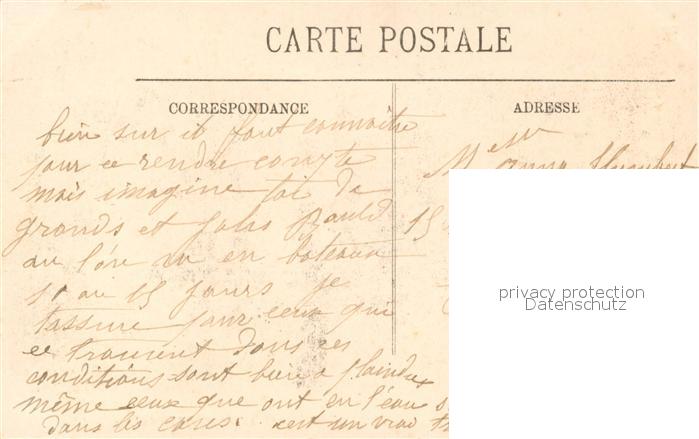 CARTE POSTALE
CORRESPONDANCE
ADRESSE
bien sur il faut connaitre
pour ce rendre compte
mais imagine toi de
grands et jolis
au l'on en bateau
10 ou 15 jours je
t'assure pour ceux qui
ce trouvent dans ces
conditions sont bien a plaindre
même ceux que ont en l'eau
dans les caves. c'est un vrai
Melle
Anna
15
privacy protection
Datenschutz